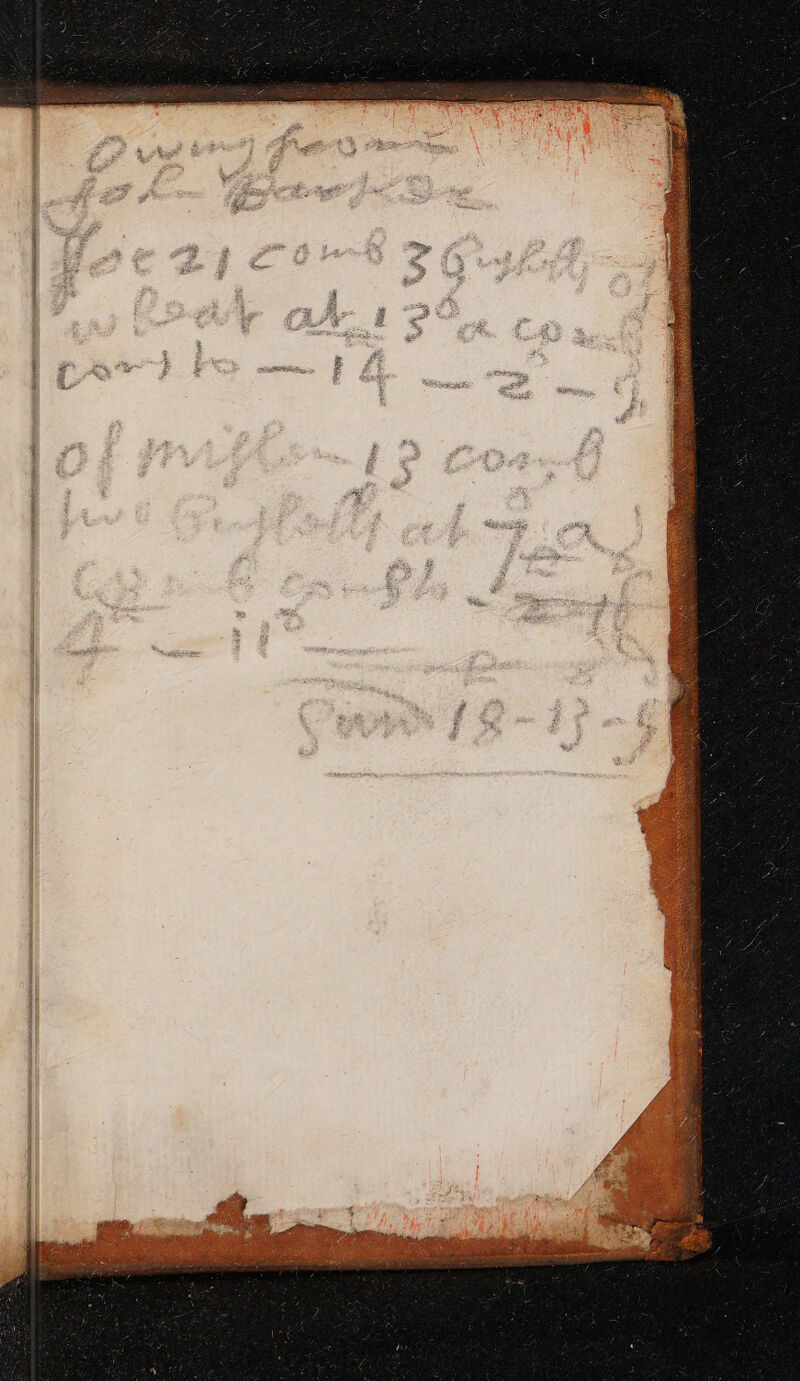 Owing from
John Barker
ffor 21 comb 3 bushells of
wheat at 13s a comb
coms to — 14 — 2 — 9
of mislen 13 comb
two bushells at 7s a
comb coms to -
4 — 11s
Sum 18-13-9